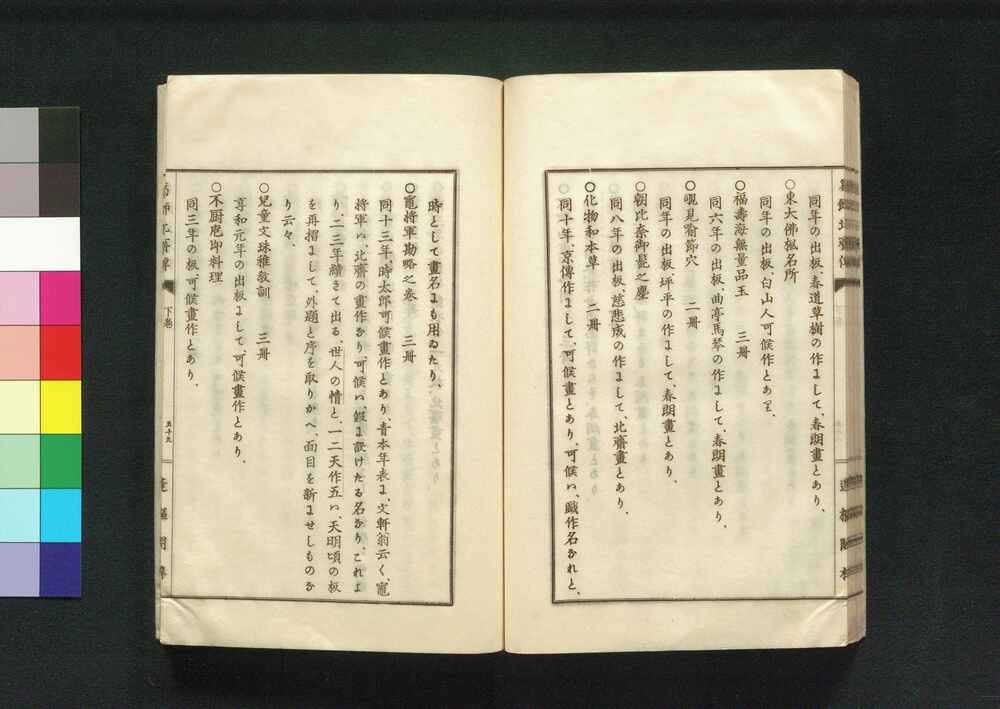 同年の出板、春道草樹の作にして、春朗畫とあり、
○東大佛楓名所
同年の出板、白山人可候作とあり、
○福壽海無量品玉　三冊
同六年の出板、曲亭馬琴の作にして、春朗畫とあり、
○覗見喩節穴　二冊
同年の出板、坪平の作にして、春朗畫とあり、
○朝比奈御髭之塵
同八年の出板、慈悲成の作にして、北齋畫とあり、
○化物和本草　二冊
同十年、京傳作にして、可候畫とあり、可候ハ、戯作名なれど、
時として畫名にも用ゐたり、
○竈将軍勘略之卷　三冊
同十三年、時太郎可候畫作とあり、青本年表に、文軒翁云く、竈
将軍ハ、北齋の畫作なり、可候ハ、假に設けたる名なり、これよ
り、二三年續きて出る、世人の惰と、一二天作五ハ、天明頃の板
を再摺にして、外題と序を取りかへ、面目を新にせしものな
り云々、
○兒童文珠稚教訓　三冊
享和元年の出板にして、可候畫作とあり、
○不厨庖即料理
同三年の板、可候畫作とあり、
下卷
五十九